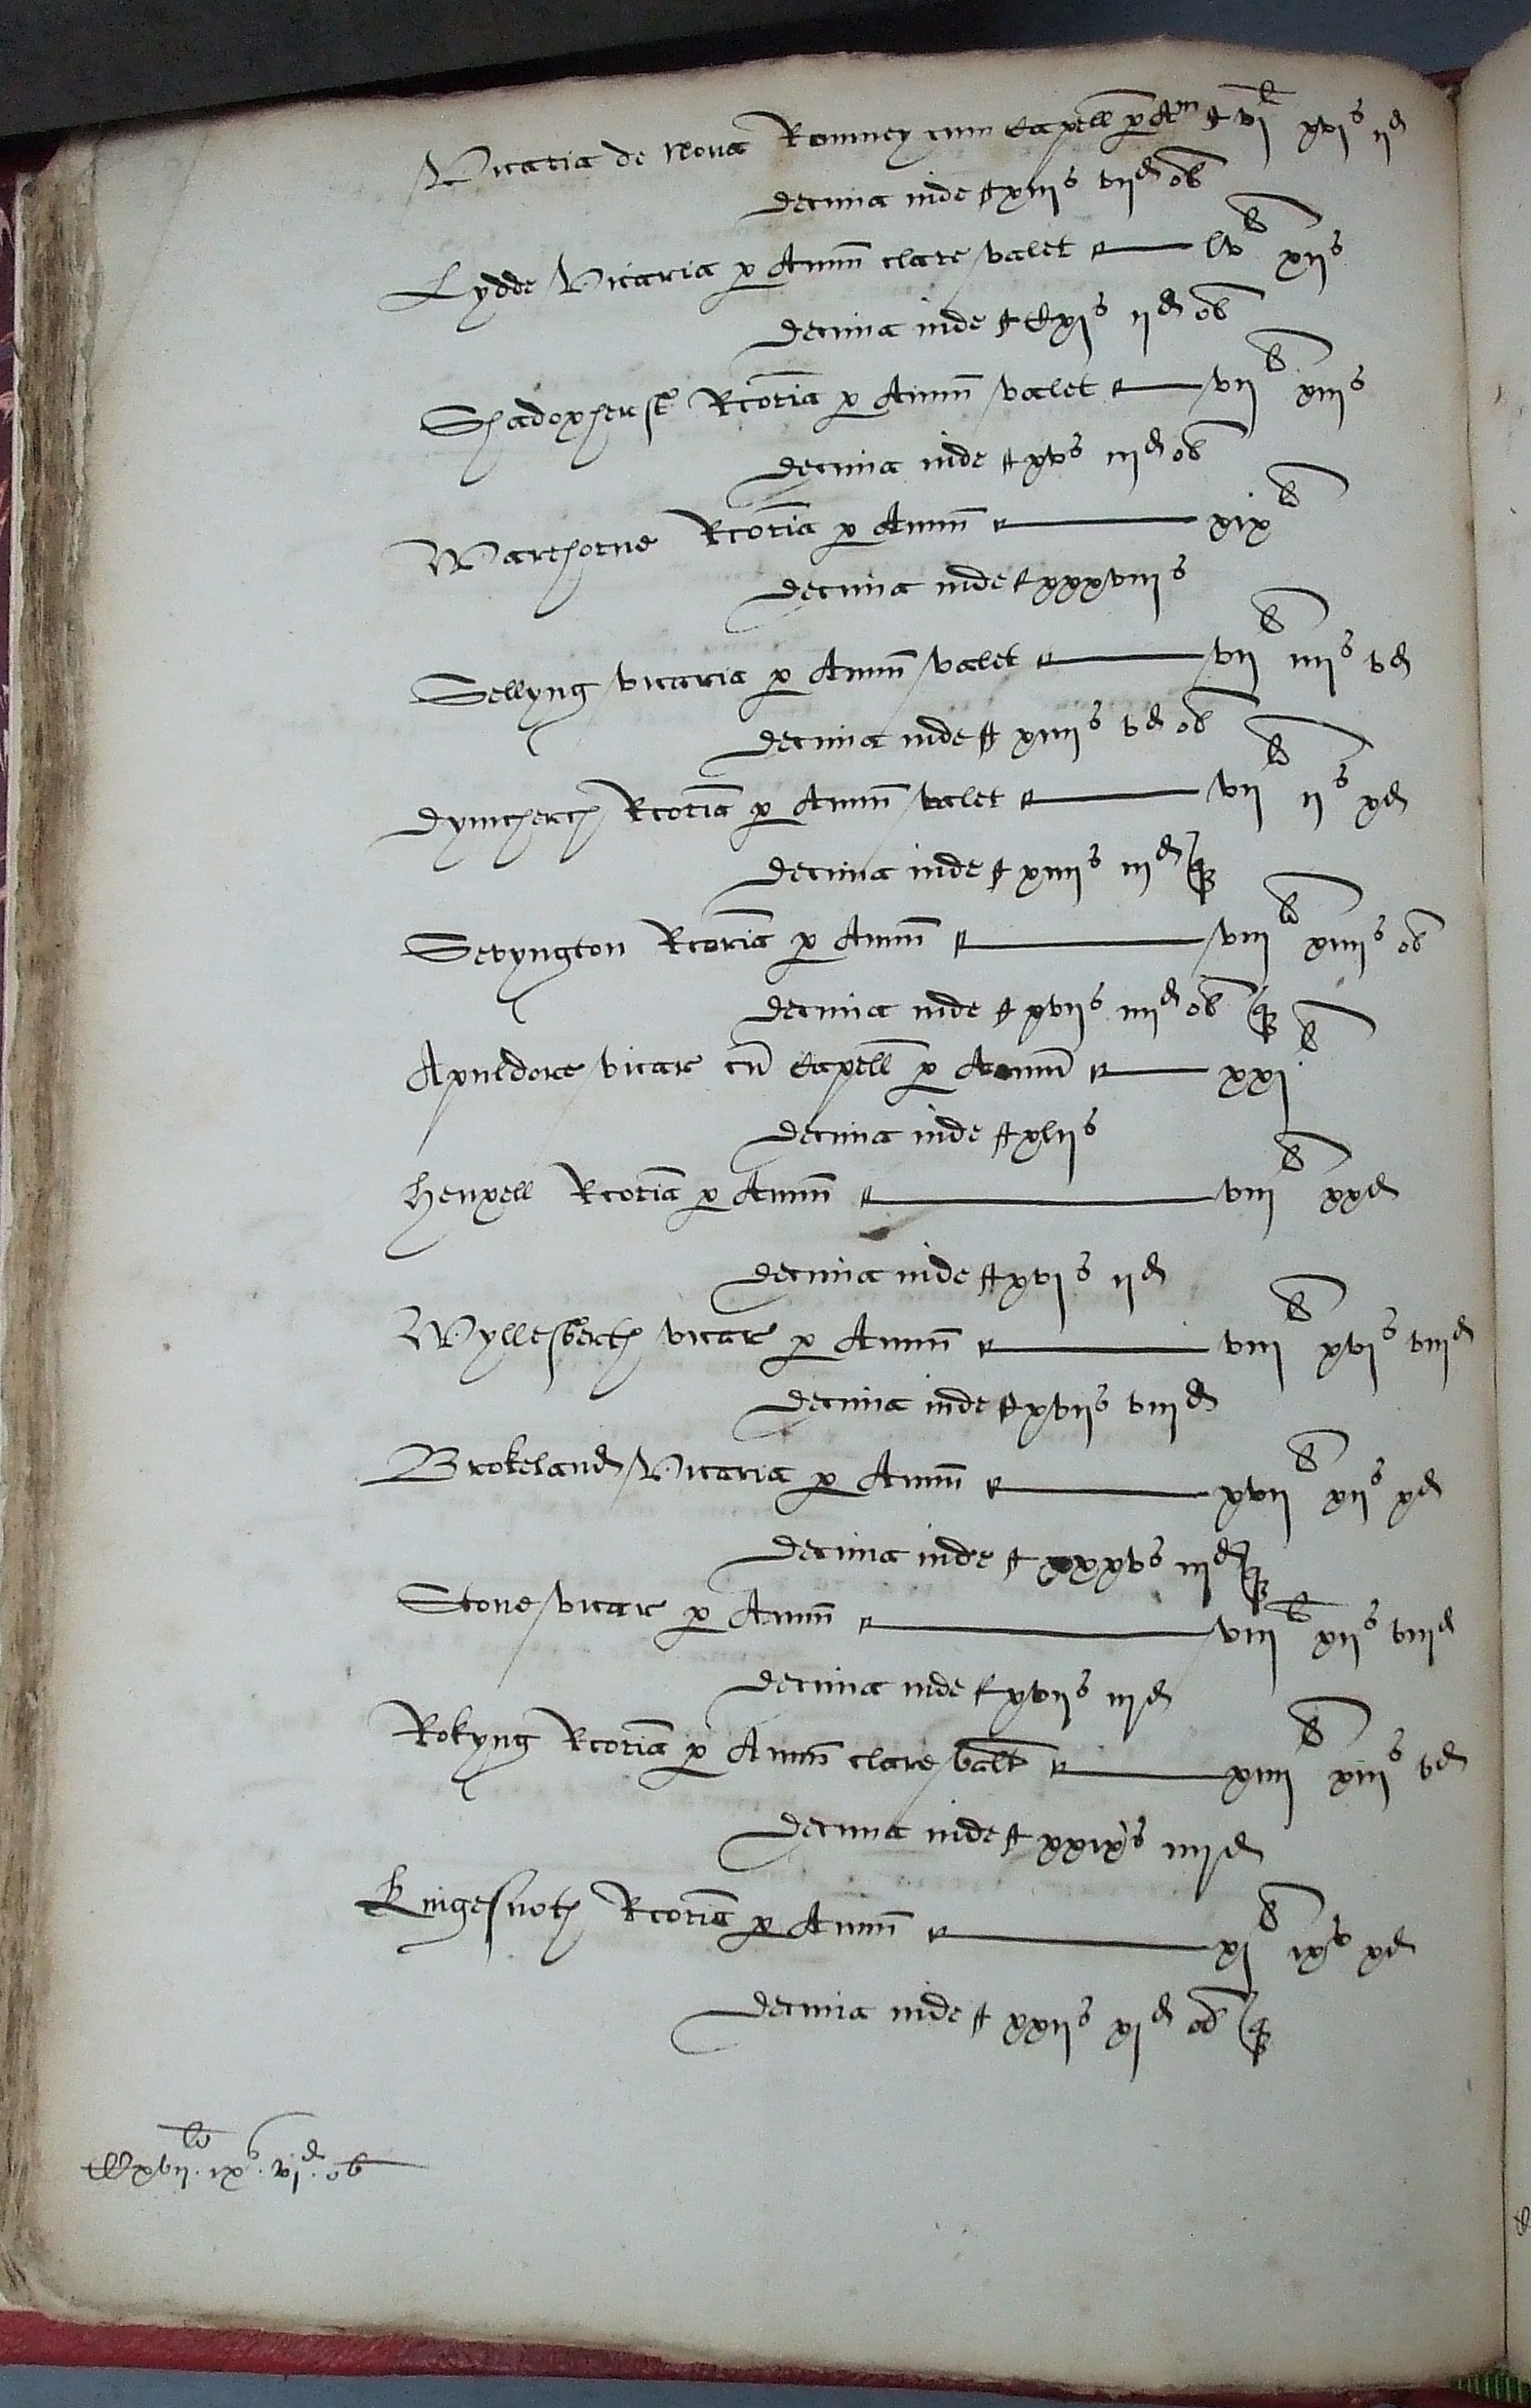 Vicaria de Nova Romney cum Capell p Am vi l xvi s ii d
Decima inde xiii s vii d ob
Lydde Vicaria p Annu clare valet lv l xii s
Decima inde Cxi s ii d ob
Shadoxherst Rcoria p Annu valet vii l xiii s
Decima inde xv s iii d ob
Warehorne Rcoria p Annu xix l
Decima inde xxxviii s
Sellyng vicaria p Annu valet vii l iiii s v d
Decima inde xiiii s v d ob
Dymcherch Rcoria p Annu valet vii l ii s x d
Decima inde xiiii s iii d q
Sevyngton Rcoria p Annu viii l xiiii s ob
Decima inde xvii s iiii d ob q
Apuldore vicar cu Capell p Annu xxi l
Decima inde xlii s
Henxell Rcoria p Annu viii l xx d
Decima inde xvi s ii d
Wyllesberch vicar p Annu viii l xvi s viii d
Decima inde xvii s viii d
Brokeland Vicaria p Annu xvii l xii s x d
Decima inde xxxv s iii d q
Stone vicar p Annu viii l xii s viii d
Decima inde xvii s iii d
Rokyng Rcoria p Annu clare valt xiiii l xiii s v d
Decima inde xxix s iiii d
Kingesnoth Rcoria p Annu xi l ix s x d
Decima inde xxii s xi d ob q
xvii l ix s vi d ob